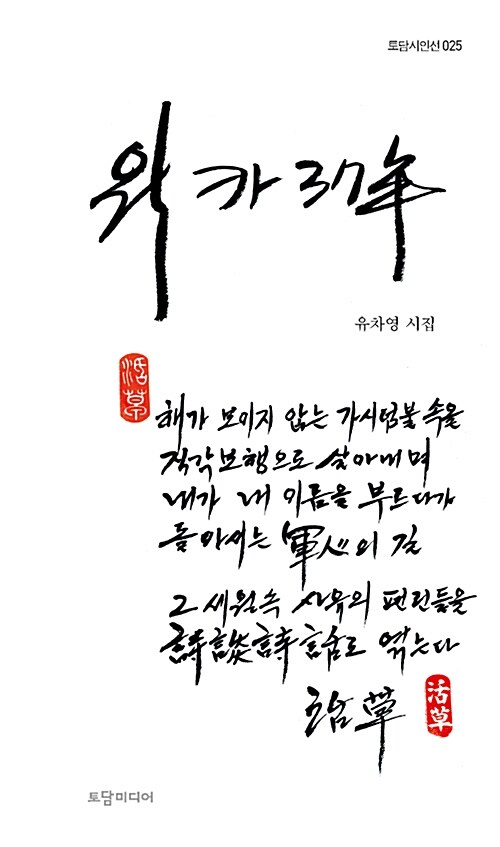 토담시인선 025
워카 37年
유차영 시집
活草
해가 보이지 않는 가시덤불 속을
직각보행으로 살아내며
내가 내 이름을 부르다가
돌아서는 軍人의 길
그 세월속 사유의 편린들을
詩談詩話로 엮는다
活草
活草
토담미디어